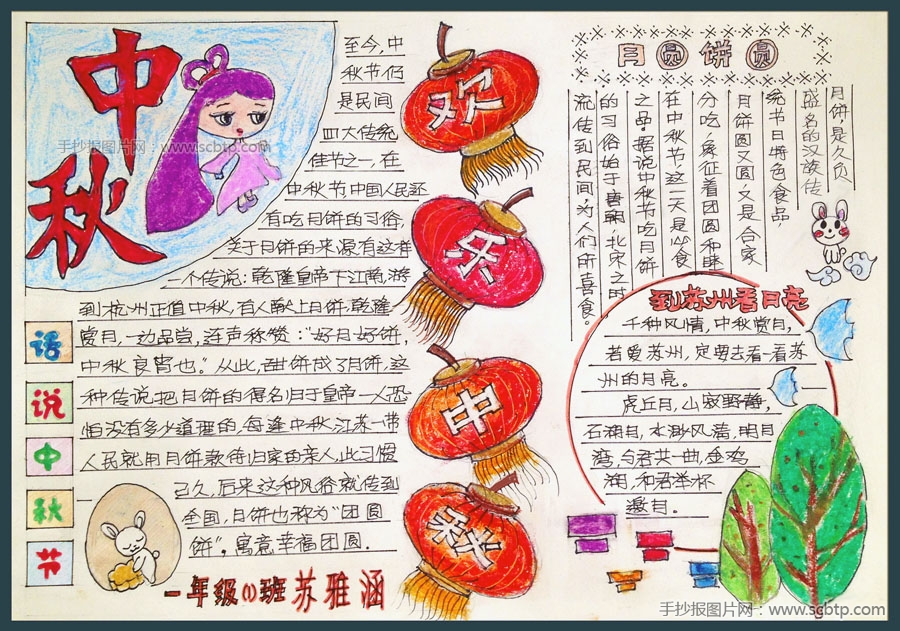 中秋
手抄报图片网：www.scbtp.com
至今，中
秋节仍
是民间
四大传统
佳节之一，在
中秋节，中国人民还
有吃月饼的习俗，
关于月饼的来源有这样
一个传说：乾隆皇帝下江南，游
到杭州正值中秋，有人献上月饼，乾隆
赏月，一边品尝，连声称赞："好月好饼，
中秋良宵也"。从此，甜饼成了月饼，这
种传说把月饼的得名归于皇帝一人恐
怕没有多少道理的，每逢中秋，江苏一带
人民就用月饼款待归家的亲人，此习惯
已久，后来这种风俗就传到
全国，月饼也称为"团圆
饼"。寓意幸福团圆．
话
说
中
秋
节
一年级(1)班 苏雅涵
欢
乐
中
秋
月圆饼圆
月饼，是久负
盛名的汉族传
统节日特色食品，
月饼圆又圆，又是合家
分吃，象征着团圆和睦
在中秋节这一天是必食
之品。据说中秋节吃月饼
的习俗始于唐朝，北宋之时
流传到民间，为人们所喜食。
到苏州看月亮
千种风情，中秋赏月，
若爱苏州，定要去看一看苏
州的月亮。
虎丘月，山寂野静，
石湖月，水渺风清，明月
湾，与君共一曲，金鸡
湖，和君举杯
邀月．
手抄报图片网：www.scbtp.com